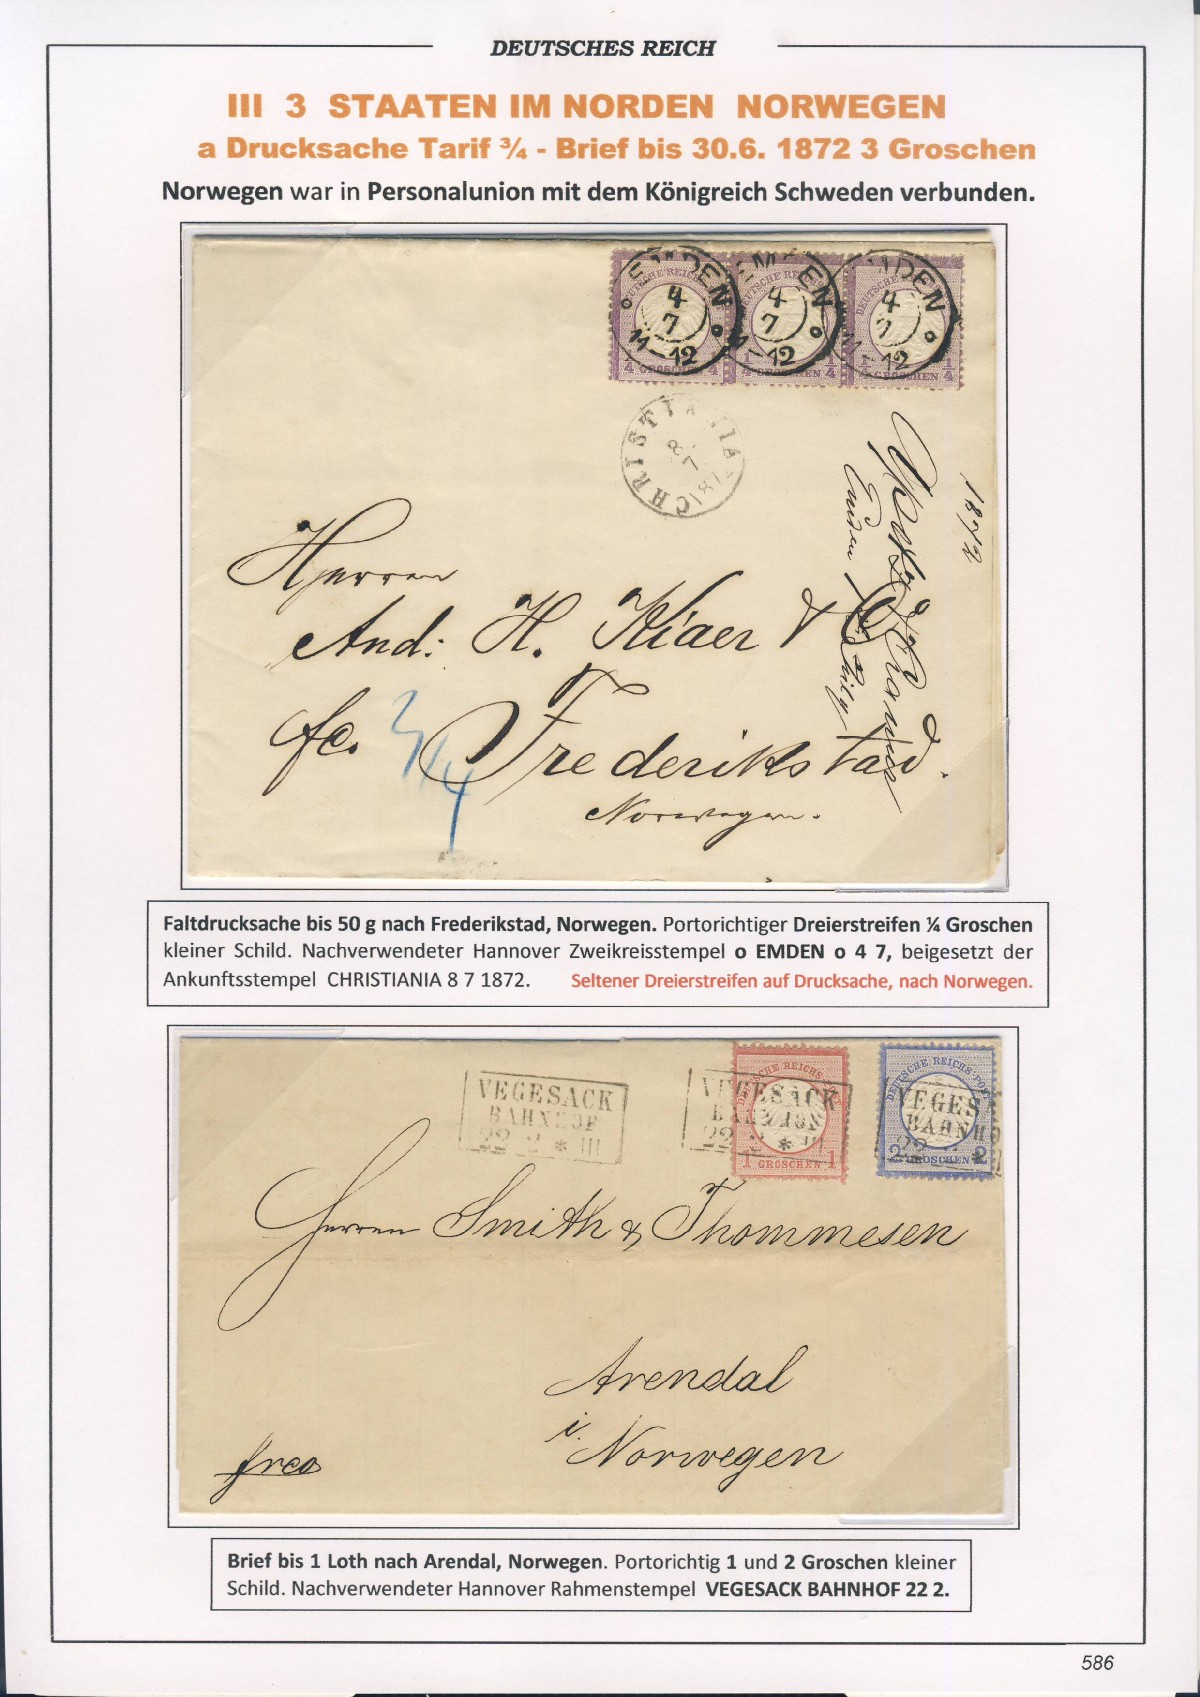 DEUTSCHES REICH
III 3 STAATEN IM NORDEN NORWEGEN
a Drucksache Tarif ¾ - Brief bis 30.6. 1872 3 Groschen
Norwegen war in Personalunion mit dem Königreich Schweden verbunden.
EMDEN
4
7
11-12
EMDEN
4
7
-12
EMDEN
4
7
11-12
DEUTSCHE REICHS
¼ GROSCHEN ¼
¼ GROSCHEN ¼
¼ GROSCHEN ¼
CHRISTIANIA
8
7
1872
Herren
And: H. Kiaer & Co
fc. Frederikstad.
Norwegen.
3/4
Faltdrucksache bis 50 g nach Frederikstad, Norwegen. Portorichtiger Dreierstreifen ¼ Groschen
kleiner Schild. Nachverwendeter Hannover Zweikreisstempel o EMDEN o 4 7, beigesetzt der
Ankunftsstempel CHRISTIANIA 8 7 1872. Seltener Dreierstreifen auf Drucksache, nach Norwegen.
VEGESACK
BAHNHOF
22 2 * III
VEGESACK
BAHNHOF
22 2 * III
1 GROSCHEN 1
DEUTSCHE REICHS-POST
VEGES
BAHNH
22 *
2 GROSCHEN 2
Herren Smith & Thommesen
Arendal
i. Norwegen
frco
Brief bis 1 Loth nach Arendal, Norwegen. Portorichtig 1 und 2 Groschen kleiner
Schild. Nachverwendeter Hannover Rahmenstempel VEGESACK BAHNHOF 22 2.
586